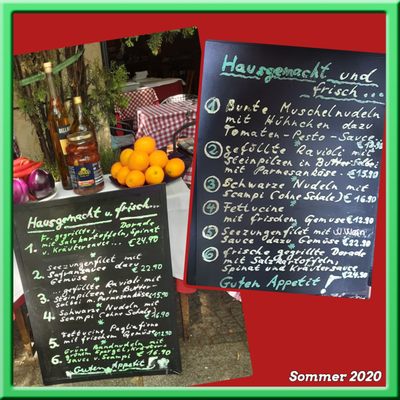 Hausgemacht u. frisch...
1. Fr. gegrillte Dorade
mit Salzkartoffeln, Spinat
u. Kräutersauce... €24.90
2. Seezungenfilet mit
Safransauce dazu
Gemüse €22.90
3. gefüllte Ravioli mit
Steinpilzen in Butter-
Salbei m. Parmesankäse
4. Schwarze Nudeln mit
Scampi (ohne Schale)
5. Fettucine
mit frischem Gemüse
6. Grüne Bandnudeln mit
grünem Spargel,
Sauce u. Scampi € 16.90
Guten Appetit
Hausgemacht und
frisch...
1 Bunte Muschelnudeln
mit Hühnchen dazu
Tomaten-Pesto-Sauce
2 gefüllte Ravioli mit
Steinpilzen in Butter-Salbei
mit Parmesankäse- €15.90
3 Schwarze Nudeln mit
Scampi (ohne Schale) €16.90
4 Fettucine
mit frischem Gemüse €12.90
5 Seezungenfilet mit
Sauce dazu Gemüse €22.90
6 frische gegrillte Dorade
mit Salzkartoffeln,
Spinat und Kräutersauce
€24.90
Guten Appetit
Sommer 2020